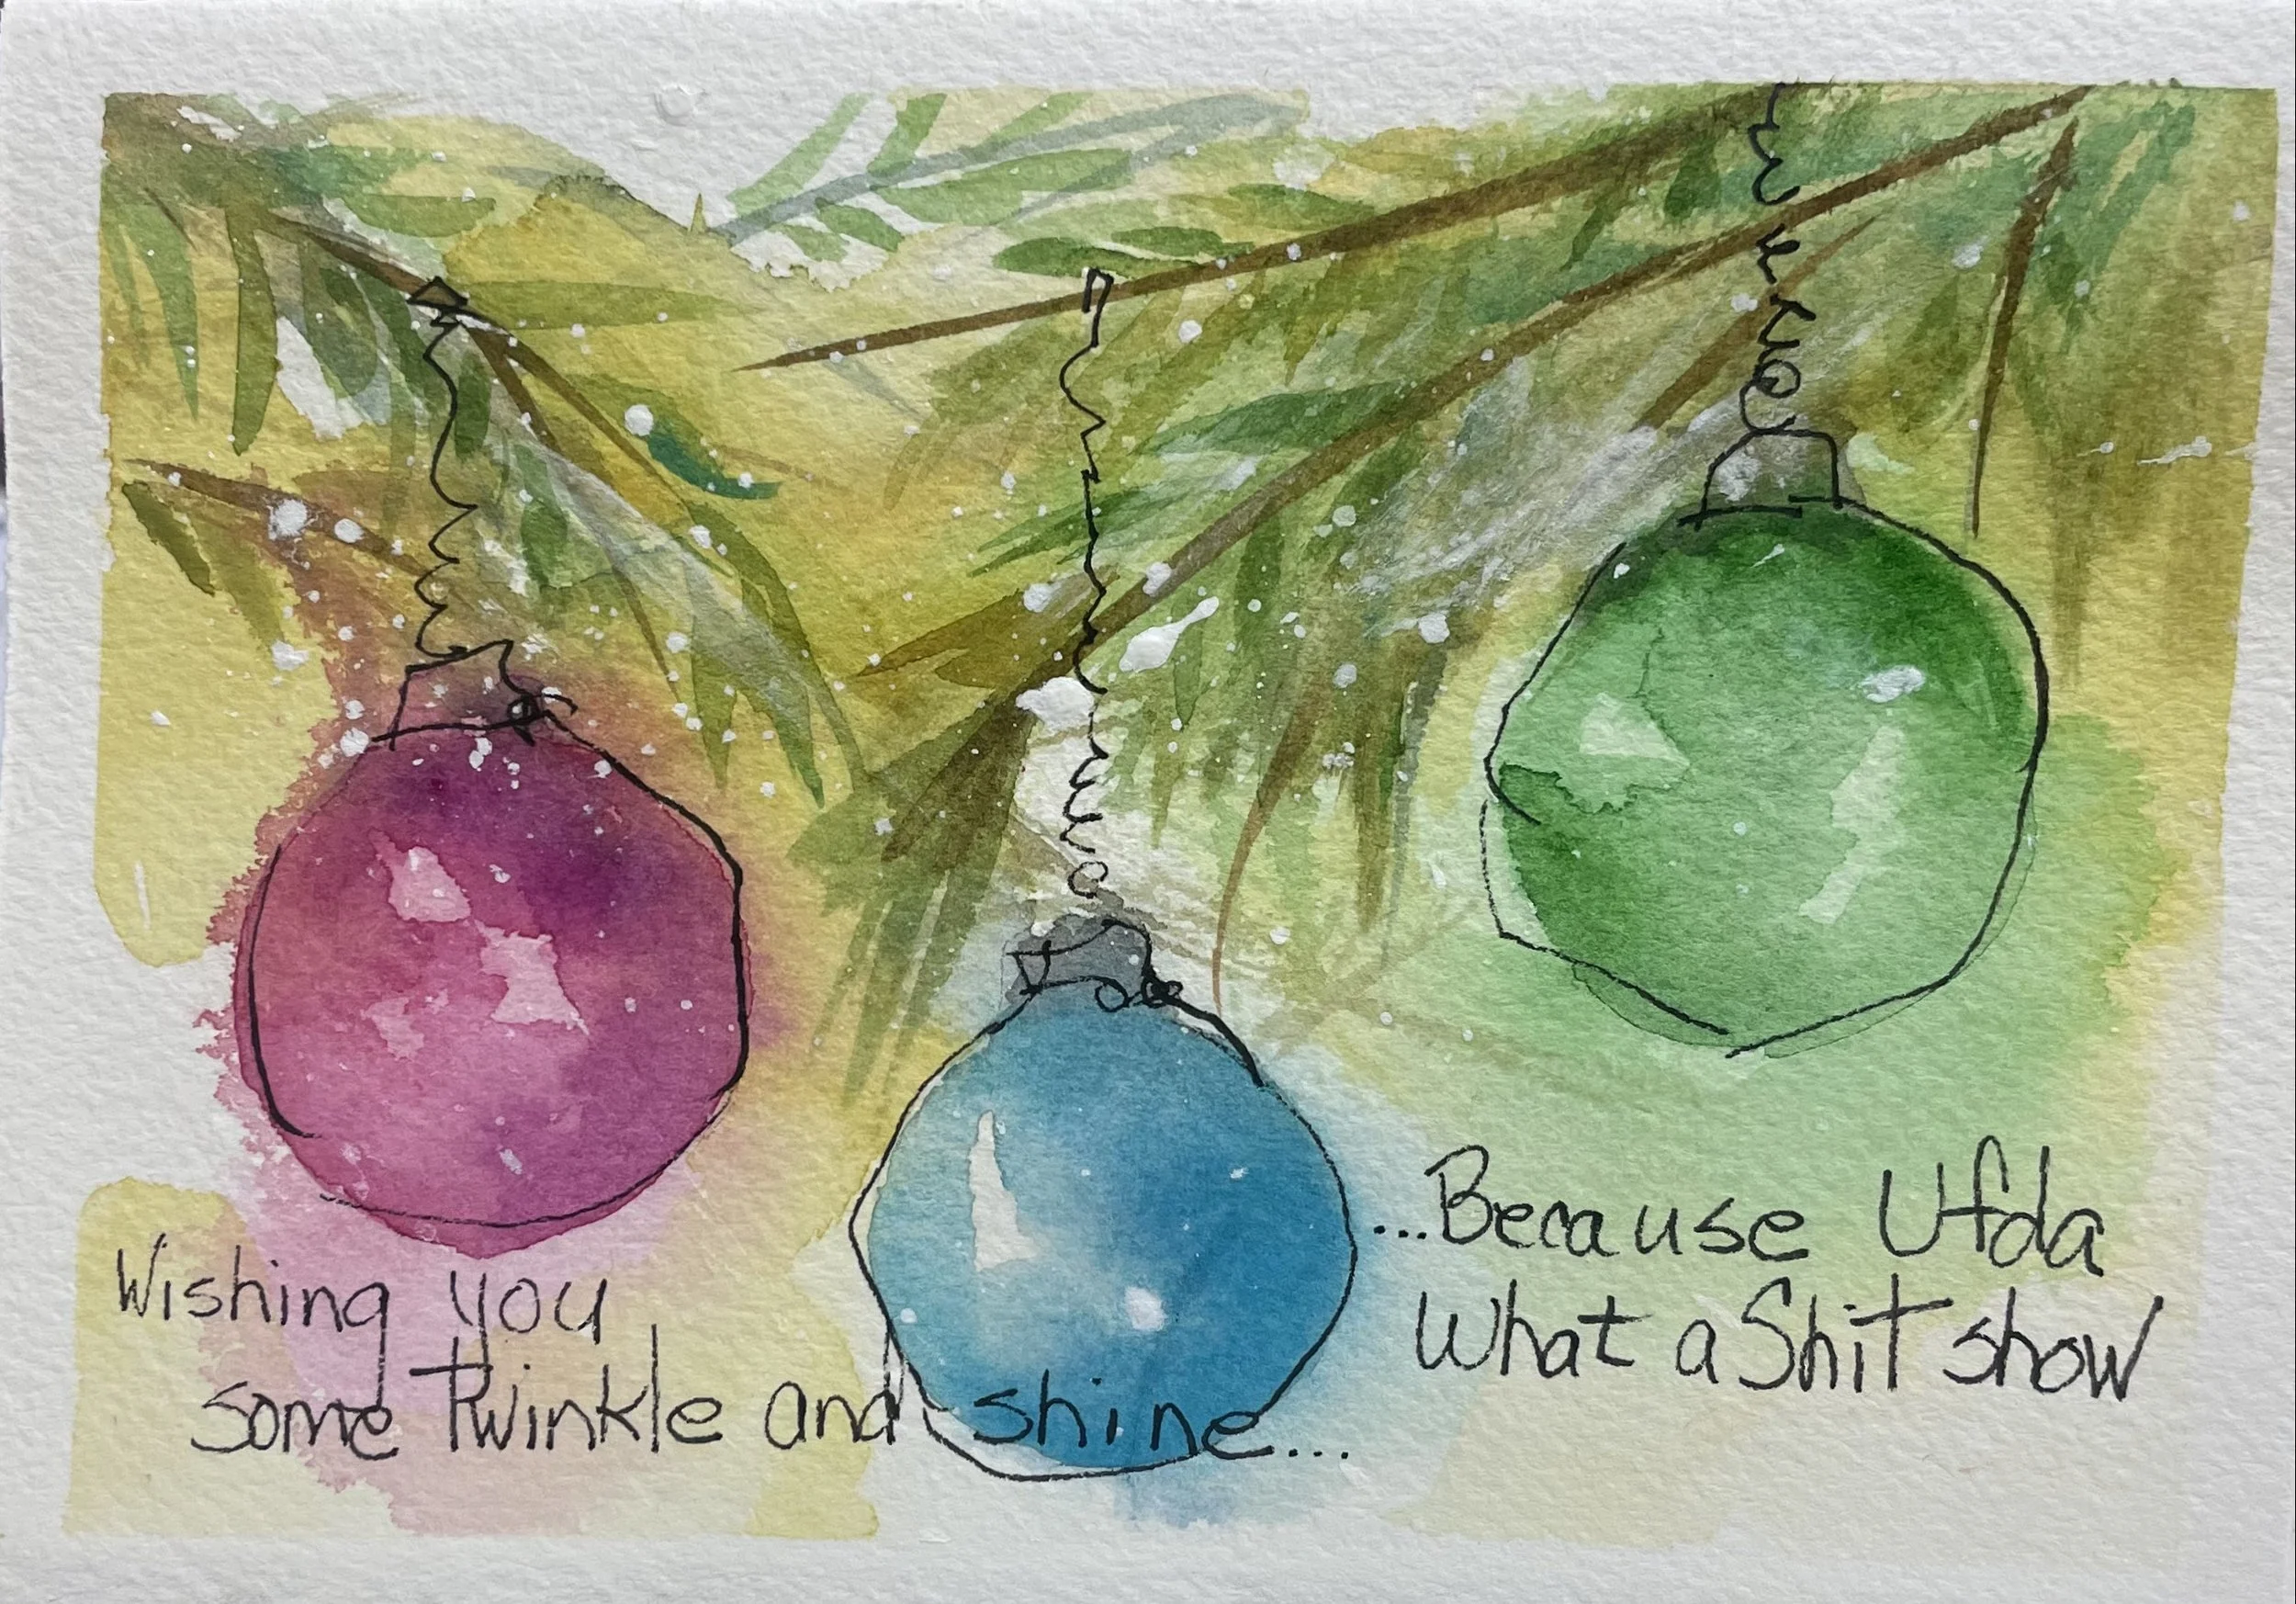 Wishing you
some twinkle and shine...
...Because Ufda
What a Shit show